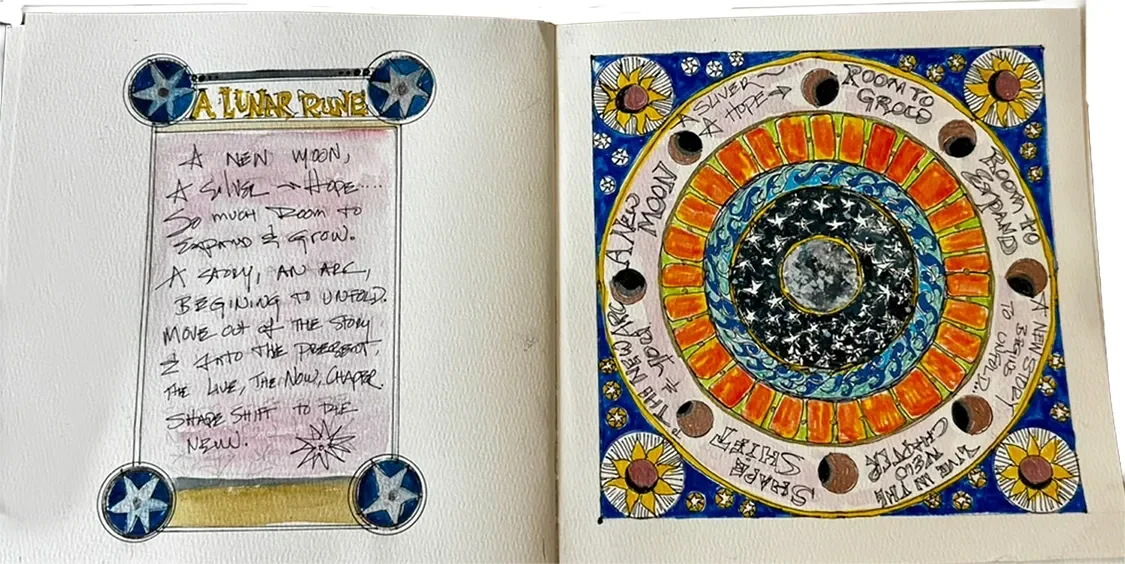 A LUNAR RUNE
A NEW MOON,
A SLIVER → HOPE....
SO MUCH ROOM TO
EXPAND & GROW.
A STORY, AN ARC,
BEGINING TO UNFOLD.
MOVE OUT OF THE STORY
& INTO THE PRESENT,
THE LIVE, THE NOW, CHAPTER.
SHAPE SHIFT TO THE
NEW.
A NEW
MOON
A SLIVER ~...
A HOPE →
ROOM TO
GROW
ROOM TO
EXPAND
A NEW STORY
BEGINS
TO UNFOLD...
LIVE IN THE
NEW
CHAPTER
SHAPE
SHIFT
TO THE NEW ARC